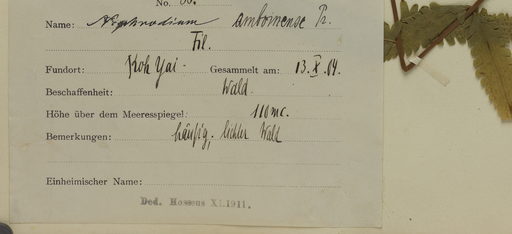 No.
Name: Nephrodium amboinense Pr.
Fil.
Fundort: Koh Yai. Gesammelt am: 13.X.04.
Beschaffenheit: Wald.
Höhe über dem Meeresspiegel: 110 m.
Bemerkungen: häufig, lichter Wald
Einheimischer Name:
Ded. Hosseus XI.1911.